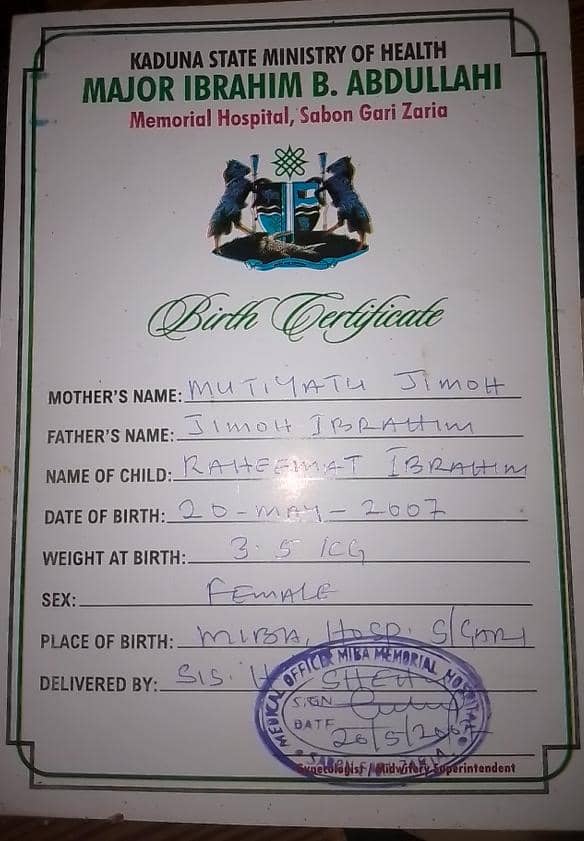 KADUNA STATE MINISTRY OF HEALTH
MAJOR IBRAHIM B. ABDULLAHI
Memorial Hospital, Sabon Gari Zaria
Birth Certificate
MOTHER'S NAME: MUTIYATU JIMOH
FATHER'S NAME: JIMOH IBRAHIM
NAME OF CHILD: RAHEEMAT IBRAHIM
DATE OF BIRTH: 20-MAY-2007
WEIGHT AT BIRTH: 3.5 KG
SEX: FEMALE
PLACE OF BIRTH: MIBA, HOSP. S/GARI
DELIVERED BY: SIS. SHEH
MEDICAL OFFICER MIBA MEMORIAL HOSPITAL
SIGN
DATE 20/5/200
SABON GARI ZARIA
Gynecologist / Midwifery Superintendent